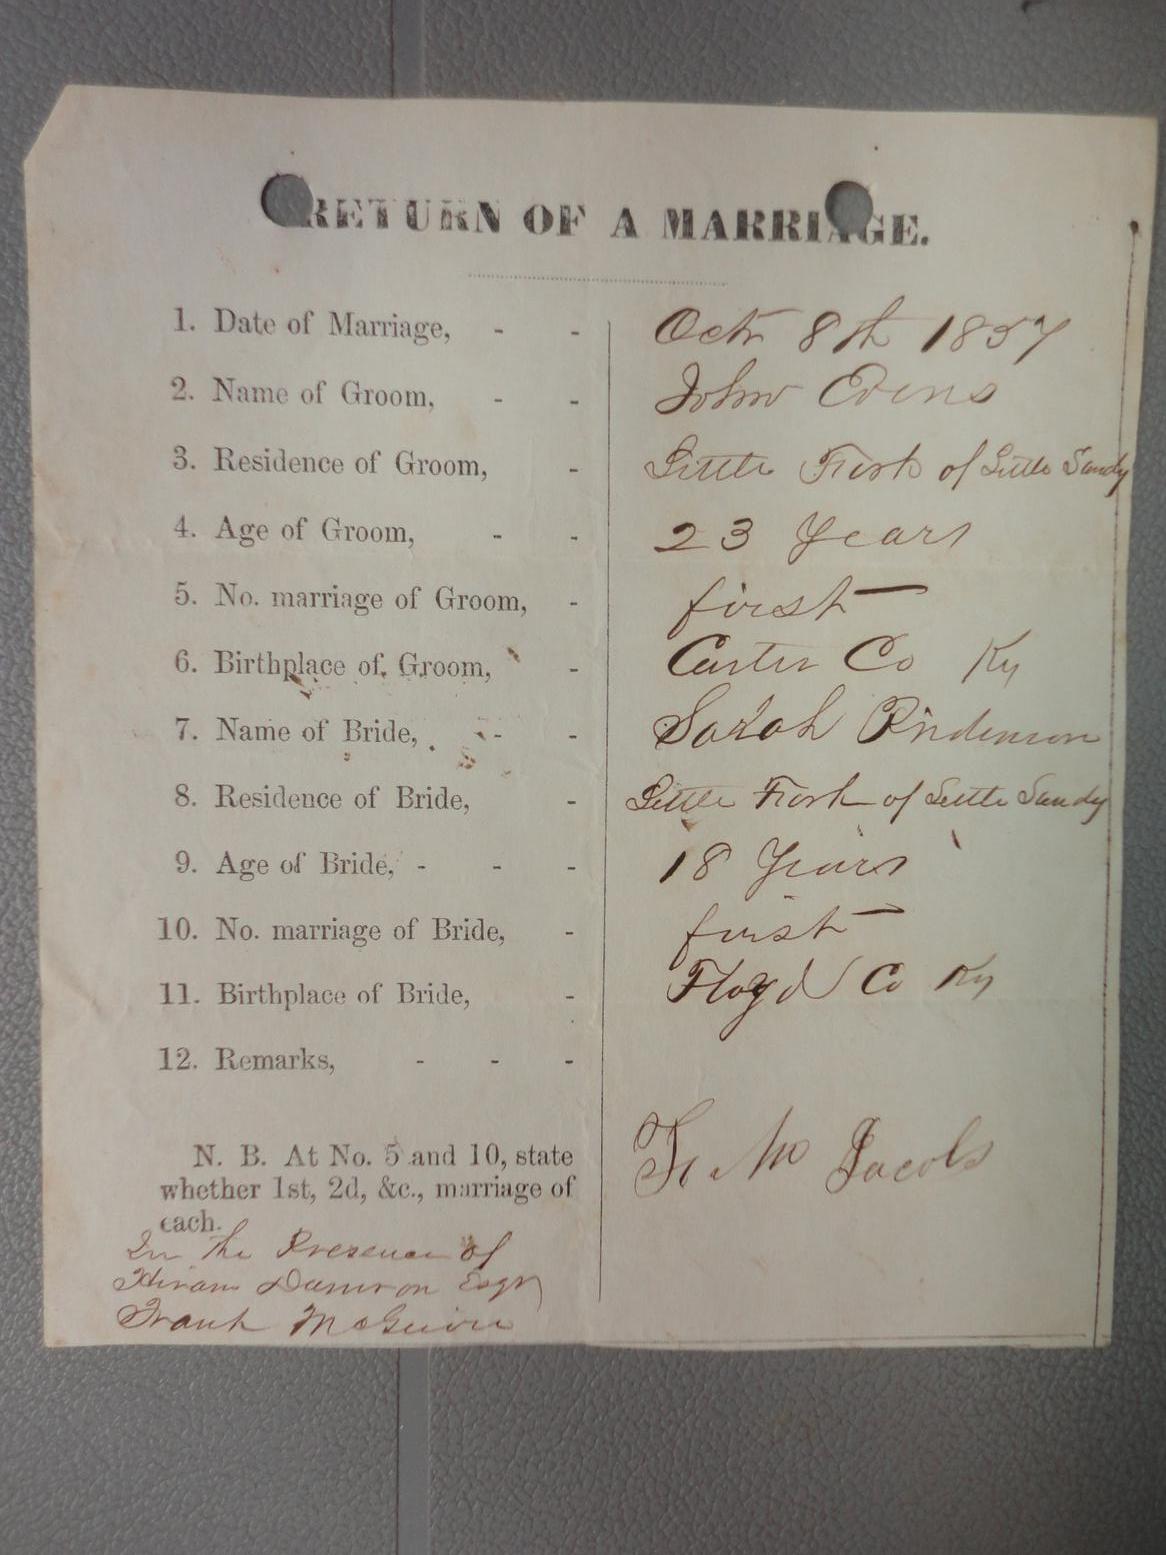 RETURN OF A MARRIAGE.
1. Date of Marriage, - - Octr 8th 1857
2. Name of Groom, - - John Evens
3. Residence of Groom, - Little Fork of Little Sandy
4. Age of Groom, - - 23 Years
5. No. marriage of Groom, - first
6. Birthplace of Groom, - Carter Co Ky
7. Name of Bride, - - Sarah
8. Residence of Bride, - Little Fork of Little Sandy
9. Age of Bride, - - - 18 Years
10. No. marriage of Bride, - first
11. Birthplace of Bride, - Floyd Co Ky
12. Remarks, - - -
Jacobs
N. B. At No. 5 and 10, state
whether 1st, 2d, &c., marriage of
each.
In the Presence of
Hiram Damron Esqr
Frank McGuire